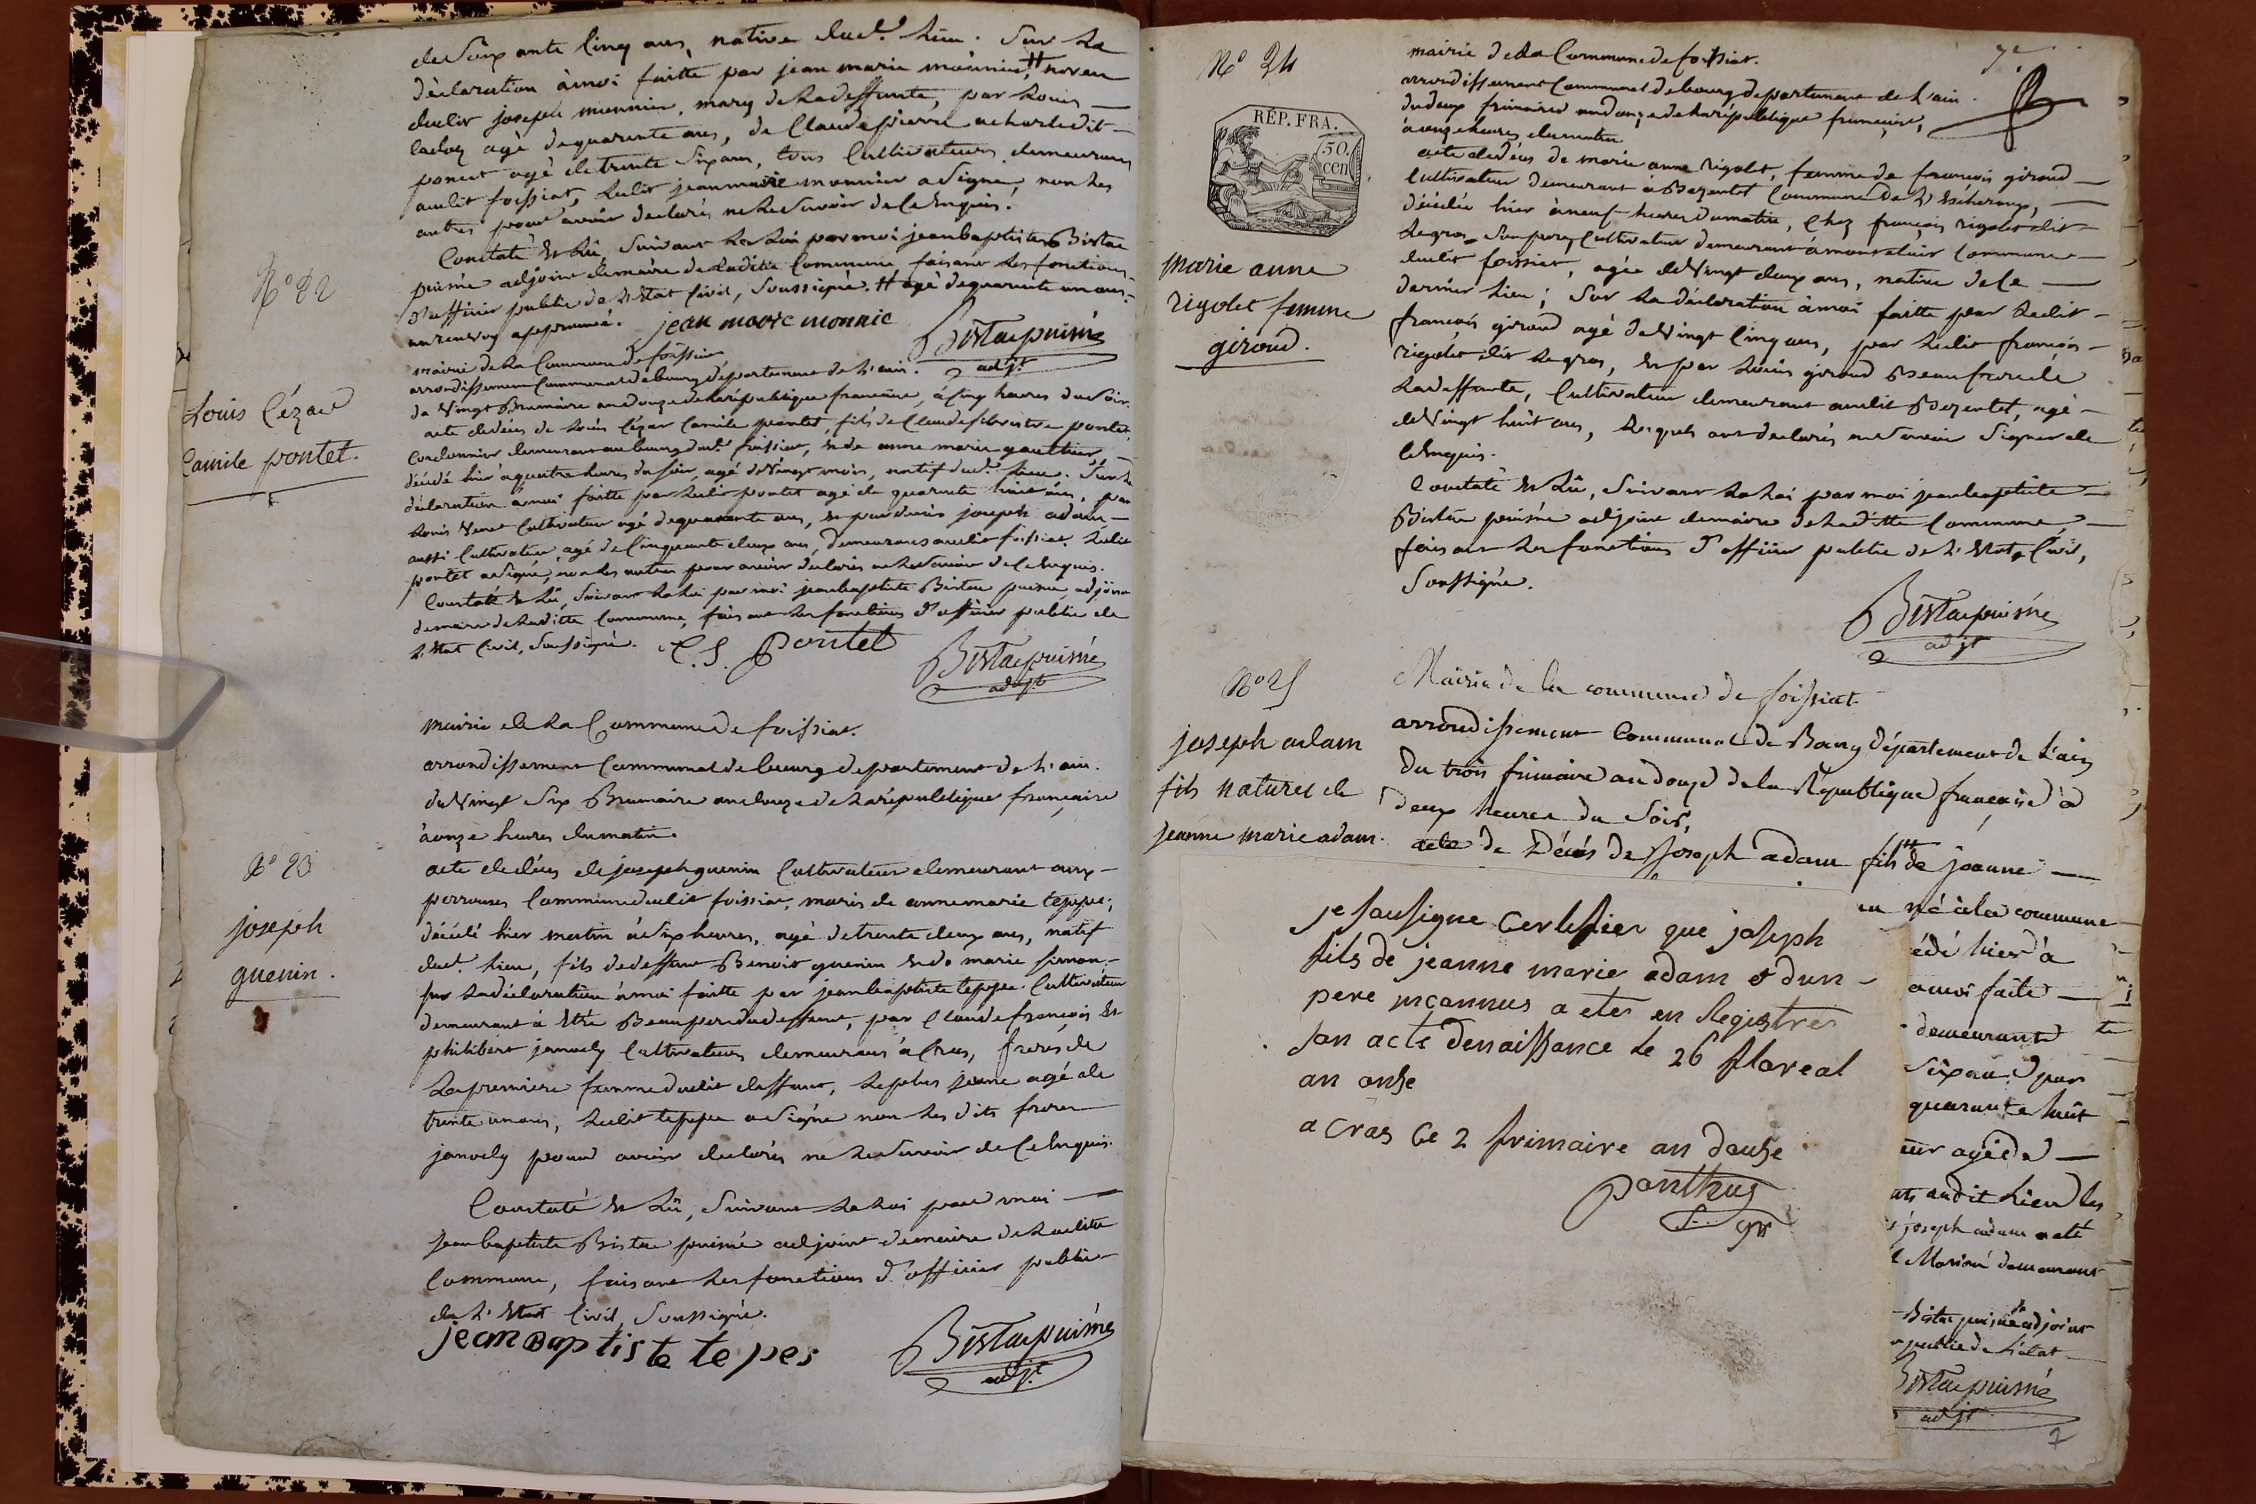 de Soixante Cinq ans, native dud.t Lieu. Sur La
déclaration à moi faitte par jean marie monnier, # neveu
dudit joseph monnier, mary de La deffunte, par Louis
cadoz agé de quarante ans, de Claude pierre dit
poncet agé de trente Six ans, tous Cultivateurs demeurans
audit foissiat, Ledit jean marie monnier a Signé, non Les
autres pour avoir declarés ne Le Savoir de Ce Enquis.
Constaté Et Lû Suivant La Loi par moi jean baptiste Bistac
puisné adjoint de maire de Laditte Commune faisant Les fonctions
d'officier public de L'Etat Civil, Soussigné. # agé de quarante un ans.
un renvoy approuvé. jean marie monnie
Bistac puisné
adjt
N° 22
Louis Cézar
Camile pontet.
mairie de La Commune de foissiat
arrondissement Communal de bourg departement de L'ain.
du Vingt Brumaire an douze de La république francaise, à Cinq heures du Soir.
acte de deces de Louis Cézar Camile pontet, fils de Claude Silvestre pontet,
Cordonnier demeurant au bourg dud.t foissiat, Et de anne marie gauthier,
décédé hier à quatre heures du Soir, agé de Vingt mois, natif dud.t Lieu. Sur La
déclaration à moi faitte par Ledit pontet agé de quarante huit ans, par
Louis Venet Cultivateur agé de quarante ans, Et par denis joseph adam
aussi Cultivateur, agé de Cinquante deux ans, demeurans audit foissiat. Ledit
pontet a Signé, non Les autres pour avoir declarés ne Le Savoir de Ce Enquis.
Constaté Et Lû, Suivant La Loi par moi jean baptiste Bistac puisné, adjoint
de maire de Laditte Commune, faisant Les fonctions d'officier public de
L'Etat Civil, Soussigné. C. S. Pontet
Bistac puisné
adjt
mairie de La Commune de foissiat.
arrondissement Communal de bourg departement de L'ain.
du Vingt Six Brumaire an douze de La république française
à onze heures du matin.
N° 23
joseph
guenin.
acte de deces de joseph guenin Cultivateur demeurant aux
perrouses Commune dudit foissiat, maris de anne marie teppe,
décédé hier matin à Six heures, agé de trente deux ans, natif
dud.t Lieu, fils de deffunt Benoit guenin Et de marie simon,
sur La déclaration à moi faitte par jean baptiste teppe Cultivateur
demeurant à Beau pere du deffunt, par Claude françois Et
philibert janody Cultivateurs demeurans à Cras, freres de
La premiere femme dudit deffunt, Le plus jeune agé de
trente un ans, Ledit teppe a Signé non Les dits freres
janody pour avoir declarés ne Le Savoir de Ce Enquis.
Constaté Et Lû, Suivant La Loi par moi
jean baptiste Bistac puisné adjoint de maire de Laditte
Commune, faisant Les fonctions d'officier public
de L'Etat Civil, Soussigné.
jean Baptiste tepes
Bistac puisné
adjt
7e
N° 24
RÉP. FRA.
50.
cen
marie anne
rigolet femme
giroud.
mairie de La Commune de foissiat.
arrondissement Communal de bourg departement de L'ain.
du deux frimaire an douze de La république francaise,
à onze heures du matin.
acte de deces de marie anne rigolet, femme de francois giroud
Cultivateur demeurant a Bezentet Commune de
décédée hier à neuf heures du matin, Chez françois rigolet dit
Legros Son pere, Cultivateur demeurant à Commune
dudit foissiat, agée de Vingt deux ans, native de Ce
dernier Lieu; Sur La déclaration à moi faitte par Ledit
francois giroud agé de Vingt Cinq ans, par Ledit francois
rigolet dit Legros, Et par Louis giroud Beau frere de
La deffunte, Cultivateur demeurant audit Bezentet, agé
de Vingt huit ans, Lesquels ont declarés ne Savoir Signer de
Ce Enquis.
Constaté Et Lû, Suivant La Loi par moi jean baptiste
Bistac puisné adjoint de maire de Laditte Commune,
faisant Les fonctions d'officier public de L'Etat Civil,
Soussigné.
Bistac puisné
adjt
N° 25
joseph adam
fils naturel de
jeanne marie adam.
Mairie de la commune de foissiat
arrondissement Communal de Bourg département de L'ain
Du trois frimaire an douze de la République française à
deux heures du Soir,
acte de Décés de Joseph adam fils # de jeanne
né à la commune
édé hier à
a moi faite
demeurant
Six an par
quarante huit
eur agé de
ts audit Lieu les
joseph adam acte
demeurant
Bistac puisné adjoint
public de L'état
Bistac puisné
adjt
7
je sousigne Certiffier que joseph
fils de jeanne marie adam & dun
pere inconnus a etes en Registres
son acte de naissance le 26 floreal
an onse
a Cras Ce 2 frimaire an douse
Ponthus